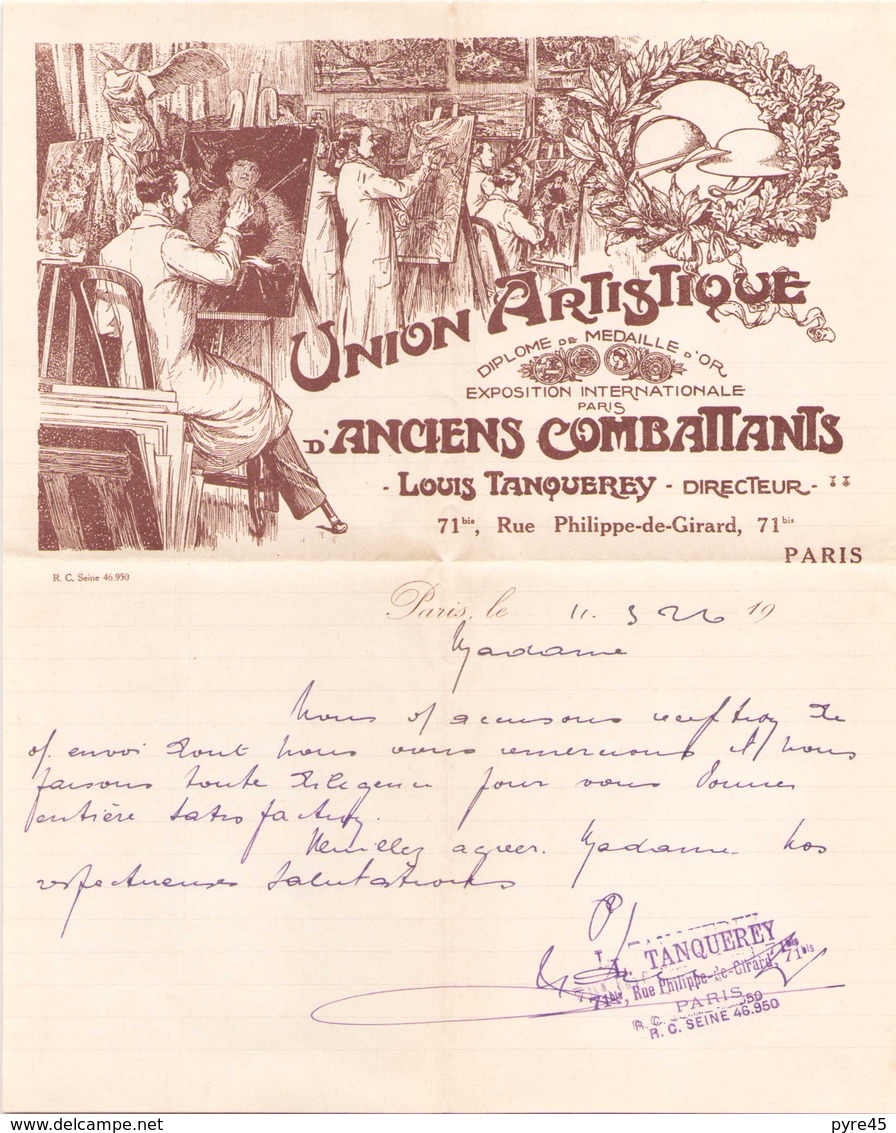 Union Artistique
DIPLOME DE MEDAILLE D'OR
EXPOSITION INTERNATIONALE
PARIS
D'ANCIENS COMBATTANTS
- LOUIS TANQUEREY - DIRECTEUR -
71bis, Rue Philippe-de-Girard, 71bis
PARIS
R. C. Seine 46.950
Paris, le 11. 3 26 19
Madame
Nous v/ accusons reception de
v/ envoi dont nous vous remercions et nous
faisons toute diligence pour vous donner
entière satisfaction.
Veuillez agreer. Madame nos
respectueuses salutations
P/
L. TANQUEREY
71bis, Rue Philippe-de-Girard, 71bis
PARIS
R. C. SEINE 46.950
www.delcampe.net
pyre45